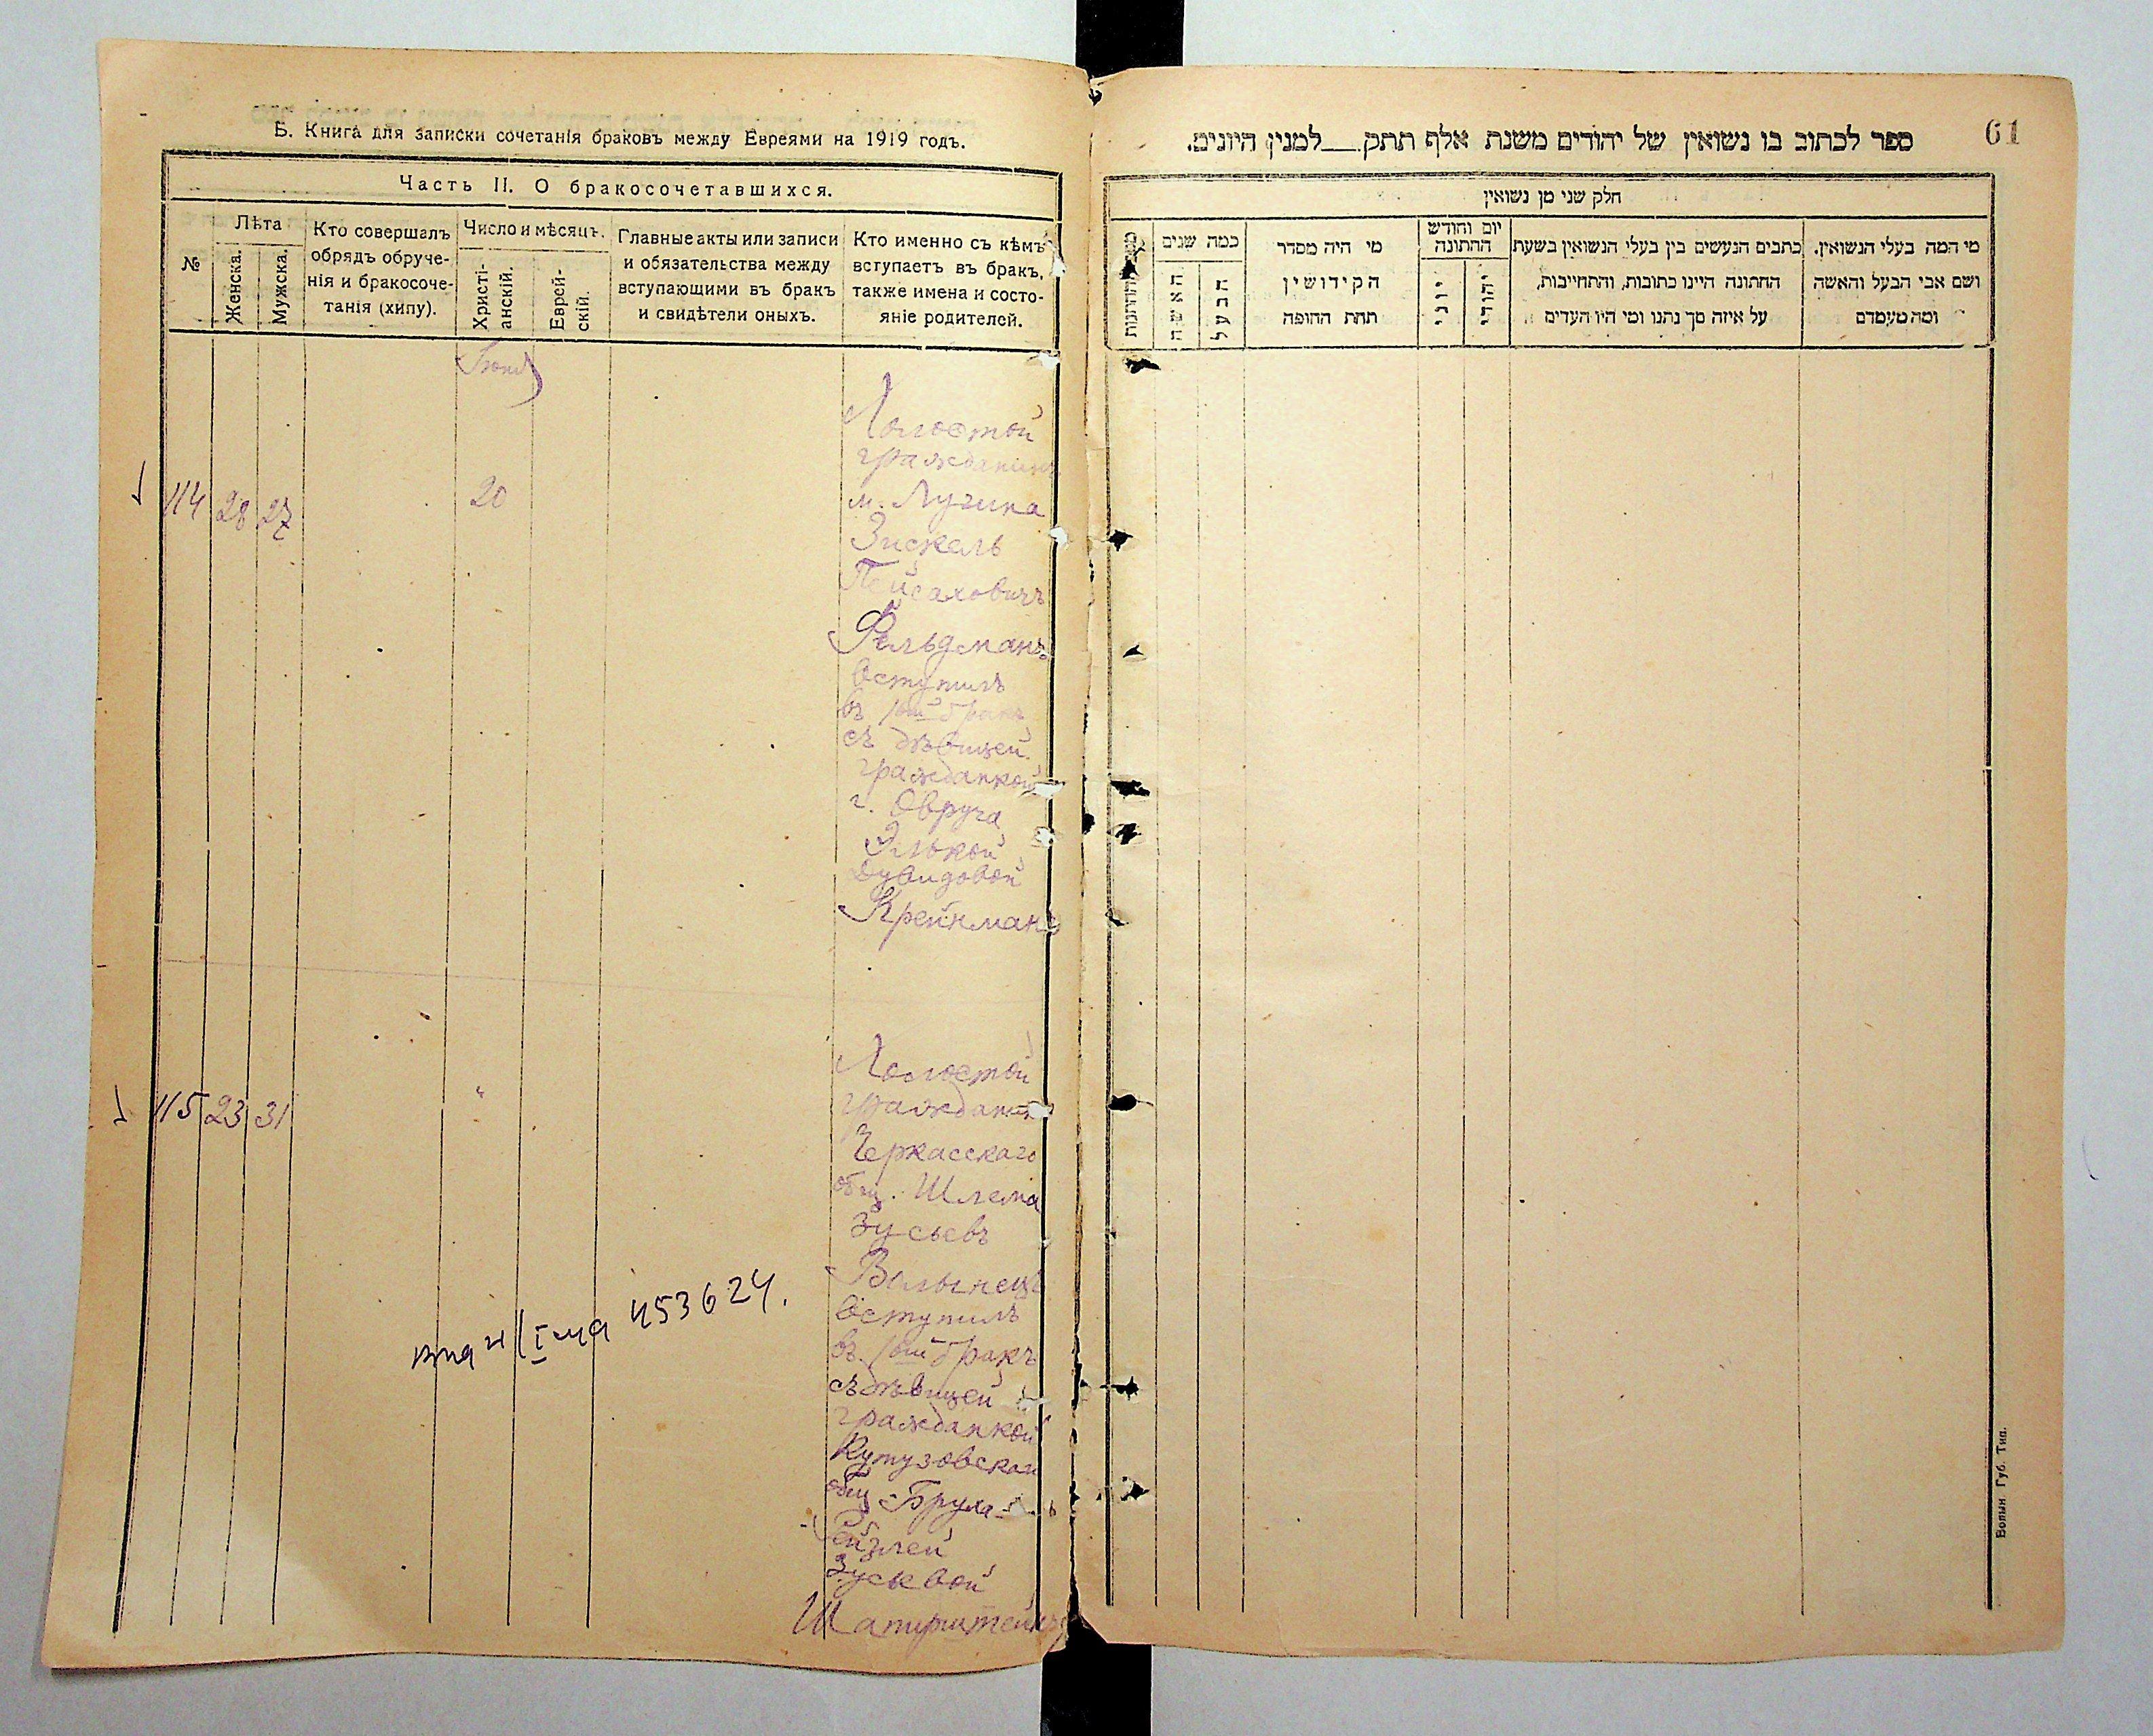 Б. Книга для записки сочетанія браковъ между Евреями на 1919 годъ.
Часть II. О бракосочетавшихся.
№
Лѣта
Женска.
Мужска.
Кто совершалъ
обрядъ обруче-
нія и бракосоче-
танія (хипу).
Число и мѣсяцъ.
Христі-
анскій.
Еврей-
скій.
Главные акты или записи
и обязательства между
вступающими въ бракъ
и свидѣтели оныхъ.
Кто именно съ кѣмъ
вступаетъ въ бракъ,
также имена и состо-
яніе родителей.
114 28 27 20
Холостой
гражданинъ
м. Лугина
Зискель
Пейсаховичъ
Фельдманъ
вступилъ
въ 1ый бракъ
съ дѣвицей
гражданкой
г. Овруча
Элькой
Дувидовой
Крейнманъ
115 23 31 "
Холостой
гражданин
Черкасскаго
общ. Шлема
Зусьевъ
Волынецъ
вступилъ
въ 1ый бракъ
съ дѣвицей
гражданкой
Кутузовской
общ Бруха-
Рейзлей
Зусьевой
453624.
61
ספר לכתוב בו נשואין של יהודים משנת אלף תתק___למנין היונים.
חלק שני מן נשואין
כמה שנים
האשה
הבעל
מי היה מסדר
הקידושין
תחת החופה
יום וחודש
החתונה
יוני
יהודי
כתבים הנעשים בין בעלי הנשואין בשעת
החתונה היינו כתובות, והתחייבות,
על איזה סך נתנו ומי היו העדים
מי המה בעלי הנשואין.
ושם אבי הבעל והאשה
ומה מעמדם
Волын. Губ. Тип.